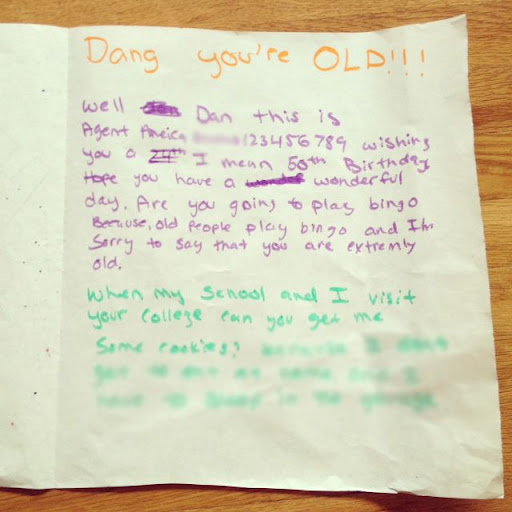 Dang you're OLD!!!
Well Dan this is
Agent 123456789 wishing
you a 24th I mean 50th Birthday
Hope you have a wonderful
day. Are you going to play bingo
Because, old people play bingo and I'm
Sorry to say that you are extremly
old.
When my School and I visit
your college can you get me
Some cookies?